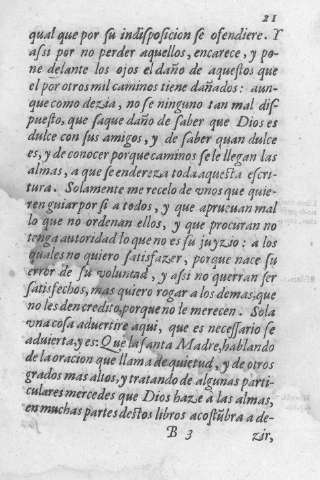 21
qual que por su indisposicion se ofendiere. Y
assi por no perder aquellos, encarece, y po-
ne delante los ojos el daño de aquestos que
el por otros mil caminos tiene dañados: aun-
que como dezia, no se ninguno tan mal dis-
puesto, que saque daño de saber que Dios es
dulce con sus amigos, y de saber quan dulce
es, y de conocer porque caminos se le llegan las
almas, a que se endereza toda aquesta escri-
tura. Solamente me recelo de vnos que quie-
ren guiar por si a todos, y que aprueuan mal
lo que no ordenan ellos, y que procuran no
tenga autoridad lo que no es su juyzio: a los
quales no quiero satisfazer, porque nace su
error de su voluntad, y assi no querran ser
satisfechos, mas quiero rogar a los demas, que
no les den credito, porque no le merecen. Sola
vna cosa aduertire aqui, que es necessario se
aduierta, y es: Que la santa Madre, hablando
de la oracion que llama de quietud, y de otros
grados mas altos, y tratando de algunas parti-
culares mercedes que Dios haze a las almas,
en muchas partes destos libros acostũbra a de-
B 3
zir,